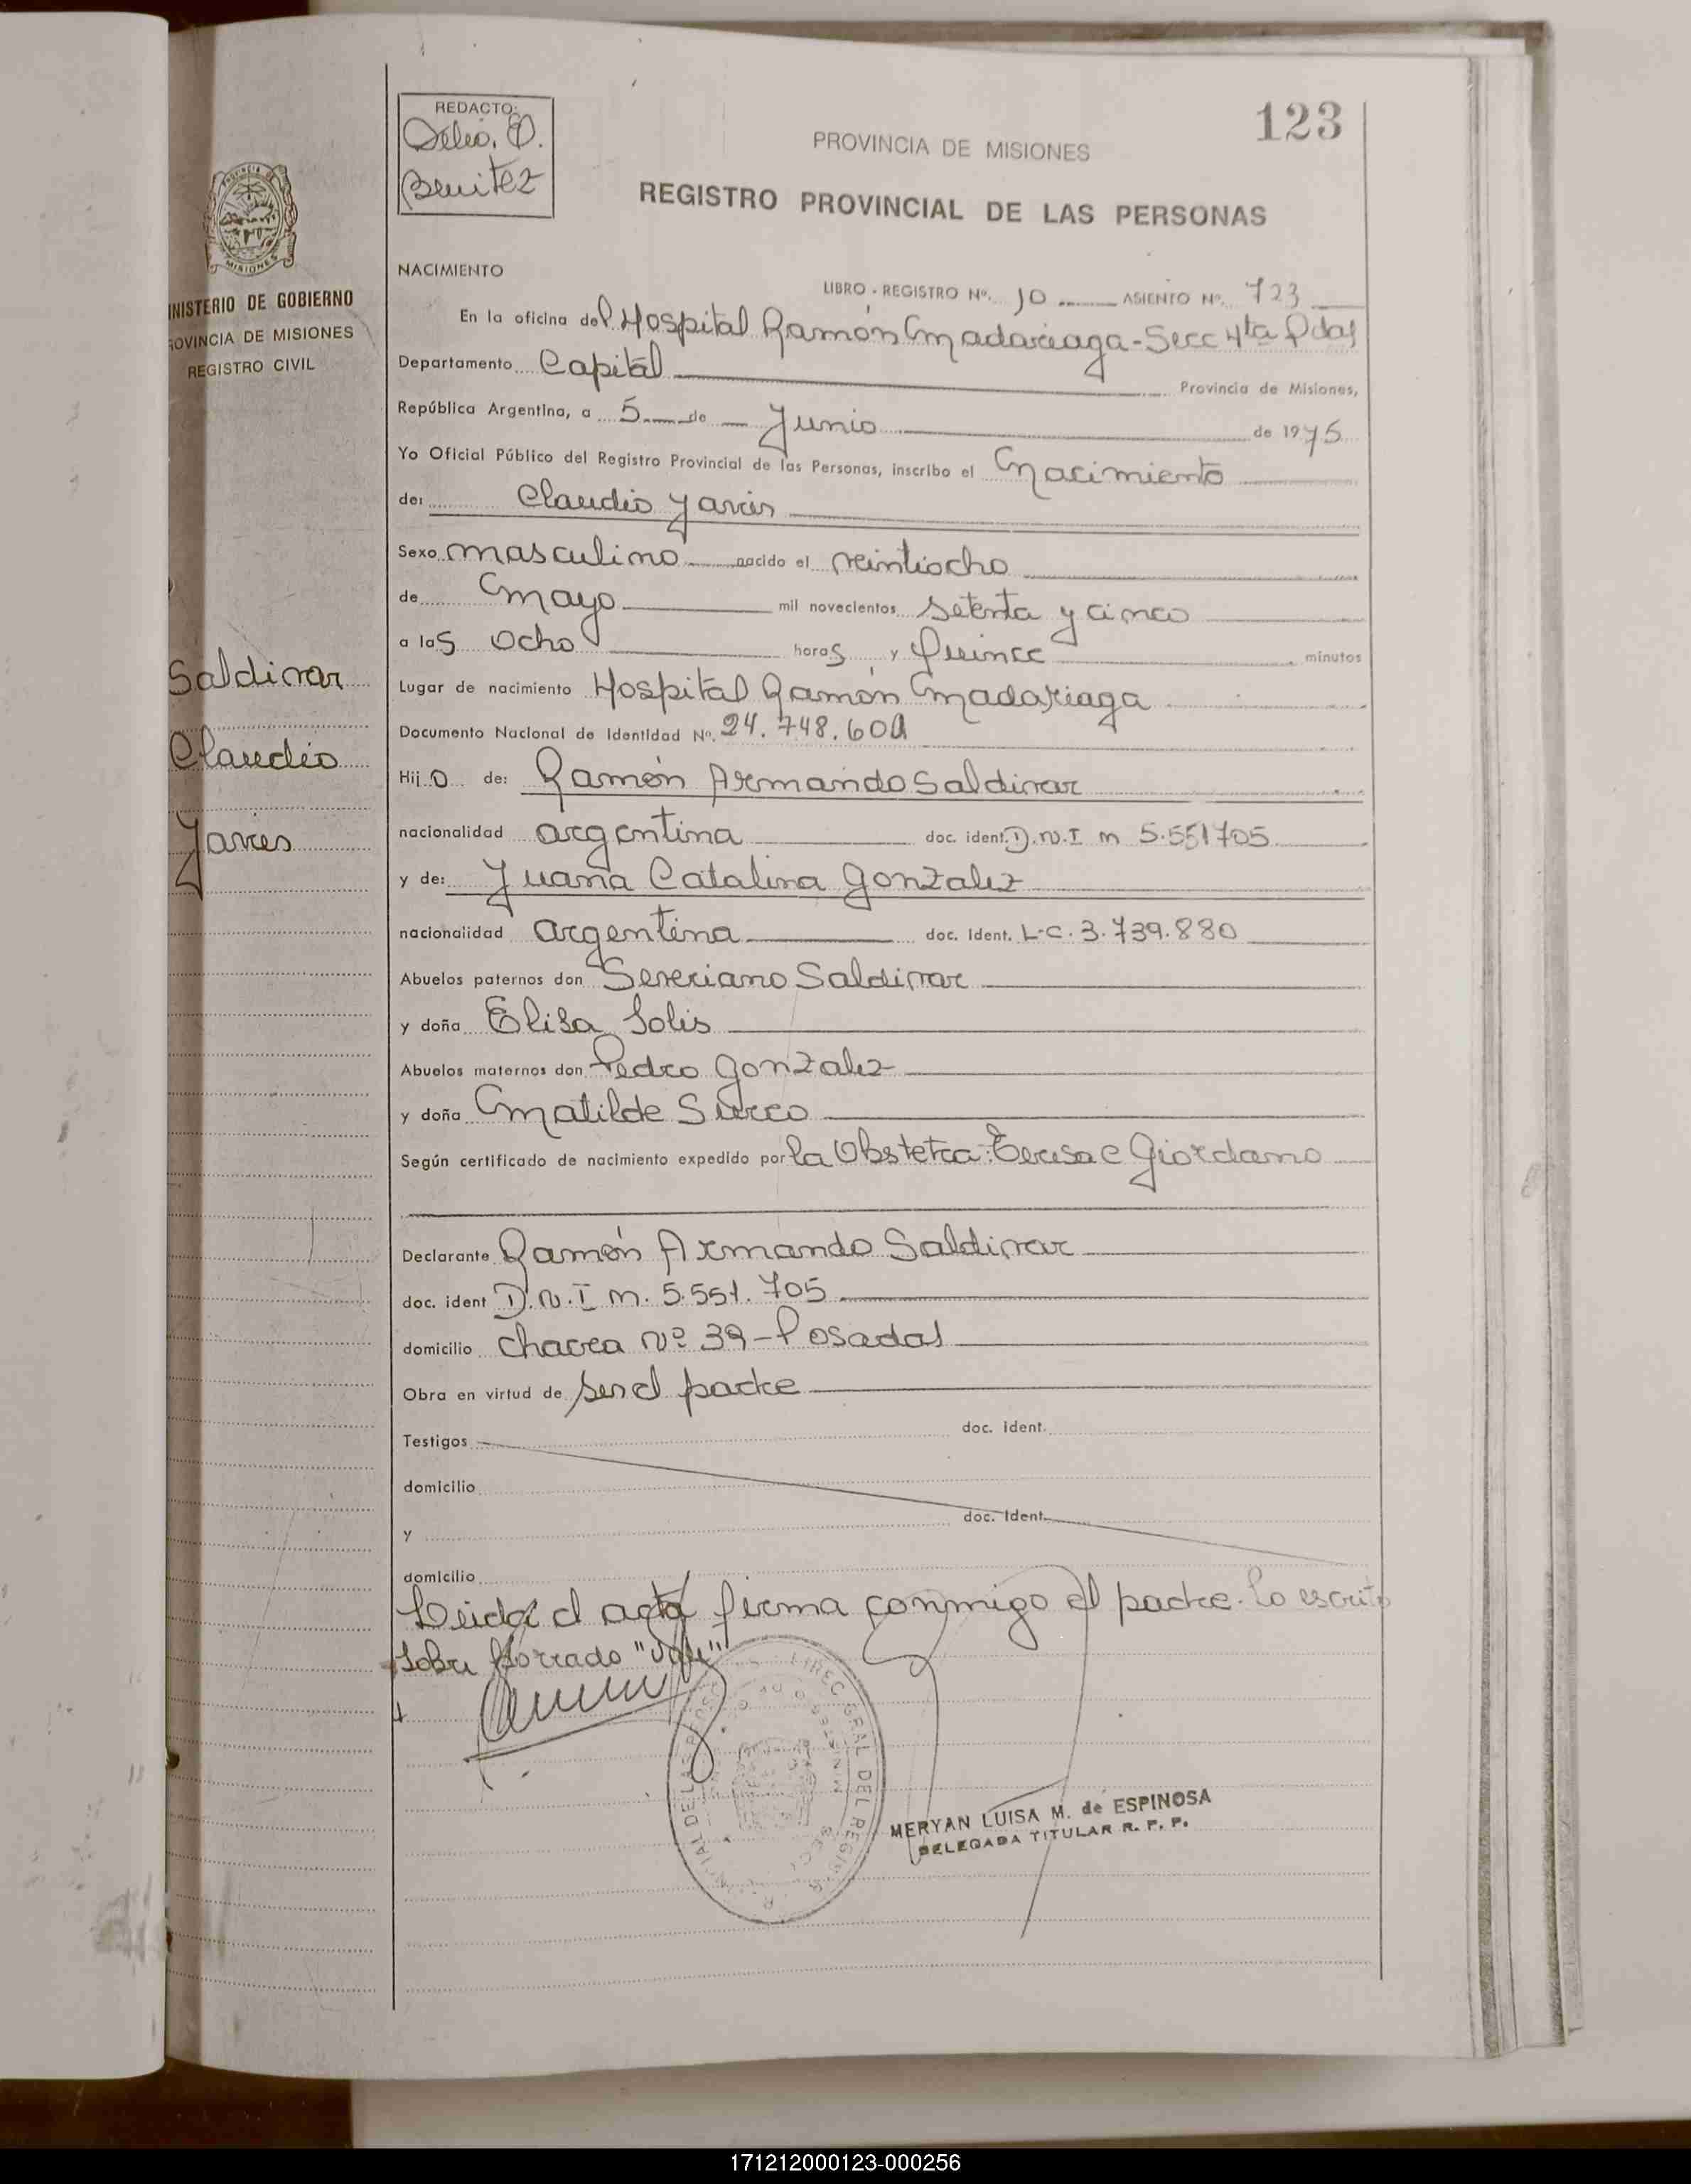 123
REDACTO:
Delio. O.
Benitez
PROVINCIA DE MISIONES
REGISTRO PROVINCIAL DE LAS PERSONAS
PROVINCIA DE
MISIONES
INISTERIO DE GOBIERNO
ROVINCIA DE MISIONES
REGISTRO CIVIL
NACIMIENTO
LIBRO - REGISTRO Nº. 10 ASIENTO Nº. 723
En la oficina del Hospital Ramón Madariaga - Secc 4ta Pdas
Departamento Capital Provincia de Misiones,
República Argentina, a 5 de Junio de 1975
Yo Oficial Público del Registro Provincial de las Personas, inscribo el Nacimiento
de: Claudio Javier
Sexo masculino nacido el veintiocho
de Mayo mil novecientos setenta y cinco
a las Ocho horas y Quince minutos
Saldivar
Claudio
Javier
Lugar de nacimiento Hospital Ramón Madariaga
Documento Nacional de Identidad Nº. 24.748.60
Hijo de: Ramón Armando Saldivar
nacionalidad argentina doc. ident. D.N.I M 5.551705
y de: Juana Catalina Gonzalez
nacionalidad argentina doc. ident. L.C. 3.739.880
Abuelos paternos don Severiano Saldivar
y doña Elisa Solis
Abuelos maternos don Pedro Gonzalez
y doña Matilde
Según certificado de nacimiento expedido por la Obstetra: Teresa C Giordano
Declarante Ramón Armando Saldivar
doc. ident D.N.I M. 5.551.705
domicilio Chacra Nº 39 - Posadas
Obra en virtud de ser el padre
Testigos doc. ident.
domicilio
y doc. ident.
domicilio
Leida el acta firma conmigo el padre. Lo escrito
sobre borrado "Vale"
DIREC. GRAL DEL REGIST
MERYAN LUISA M. de ESPINOSA
DELEGADA TITULAR R. P. P.
171212000123-000256